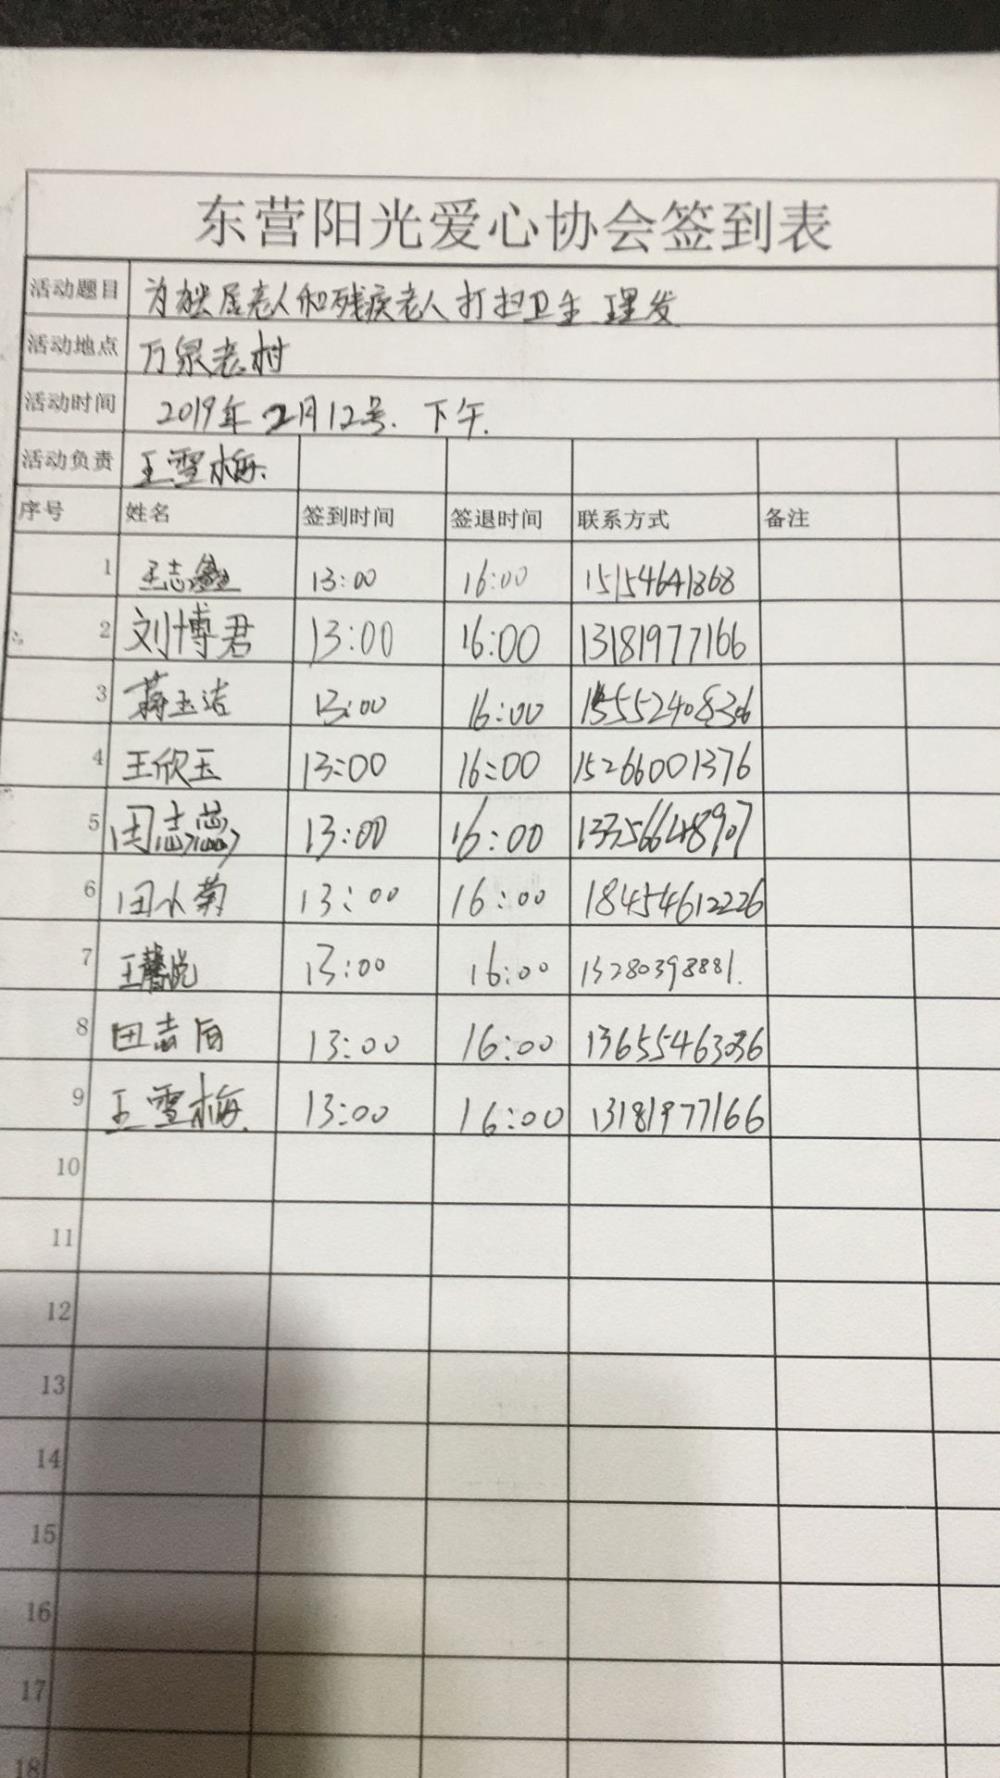 东营阳光爱心协会签到表
活动题目 为独居老人和残疾老人打扫卫生 理发
活动地点 万泉老村
活动时间 2019年2月12号. 下午.
活动负责 王雪梅.
序号 姓名 签到时间 签退时间 联系方式 备注
1 王志鑫 13:00 16:00 15154641868
2 刘博君 13:00 16:00 13181977166
3 蒋玉洁 13:00 16:00 15552408306
4 王欣玉 13:00 16:00 15266001376
5 田志蕊 13:00 16:00 13356648907
6 田小菊 13:00 16:00 18454612226
7 王馨悦 13:00 16:00 13280398881.
8 田志 13:00 16:00 13655463036
9 王雪梅. 13:00 16:00 13181977166
10
11
12
13
14
15
16
17
18